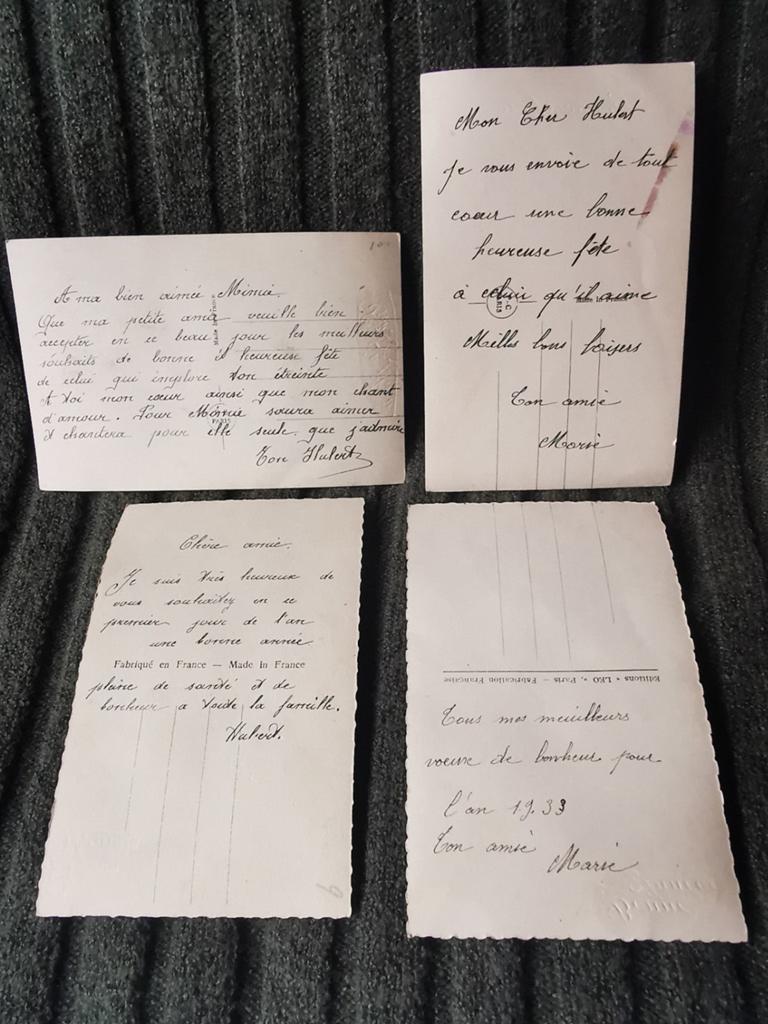 A ma bien aimée Mimie.
Que ma petite amie veuille bien
accepter en ce beau jour les meilleurs
souhaits de bonne et heureuse fête
de celui qui implore ton étreinte
A toi mon cœur ainsi que mon chant
d'amour. Pour Mimie saura aimer
et chantera pour elle seule que j'admire
Ton Hubert
Made in France
PARIS
Mon Cher Hubert
Je vous envoie de tout
coeur une bonne
heureuse fête
à celui qu'il aime
Mills bons baisers
Ton amie
Marie
Chère amie.
Je suis très heureux de
vous souhaitez en ce
premier jour de l'an
une bonne année
Fabriqué en France — Made in France
pleine de santé et de
bonheur a toute la famille.
Hubert.
9
Editions « LEO », Paris — Fabrication Française
Tous mes meuilleurs
voeux de bonheur pour
l'an 1933
Ton amie
Marie